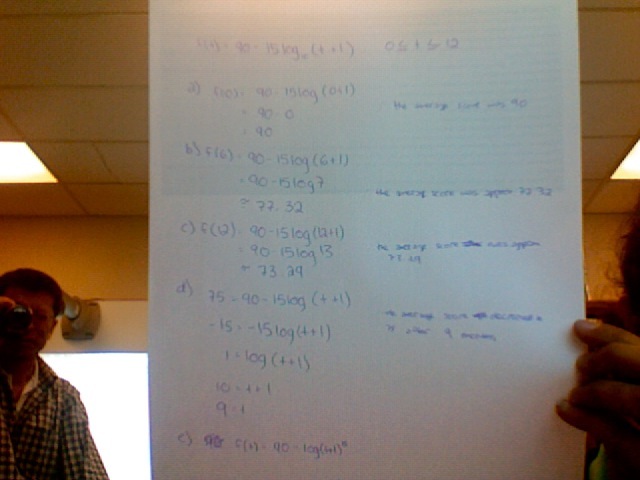 f(t) = 90 - 15 log₁₀(t + 1) 0 ≤ t ≤ 12
a) f(0) = 90 - 15 log (0+1)
= 90 - 0
= 90
the average score was 90
b) f(6) = 90 - 15 log (6+1)
= 90 - 15 log 7
≈ 77.32
the average score was approx 77.32
c) f(12) = 90 - 15 log (12+1)
= 90 - 15 log 13
≈ 73.29
the average score was approx
73.29
d) 75 = 90 - 15 log (t+1)
-15 = -15 log (t+1)
1 = log (t+1)
10 = t+1
9 = t
the average score decreased
75 after 9 months
e) f(t) = 90 - log(t+1)